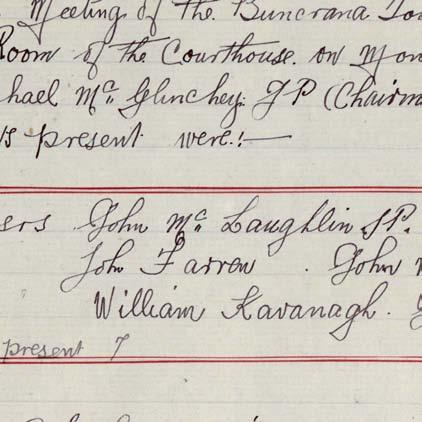 Meeting of the Buncrana To
Room of the Courthouse. on Mon
hael Mc Glinchey. JP (Chairm
rs present were:—
ers John Mc Laughlin J.P.
John Farren . John
William Kavanagh.
present 7